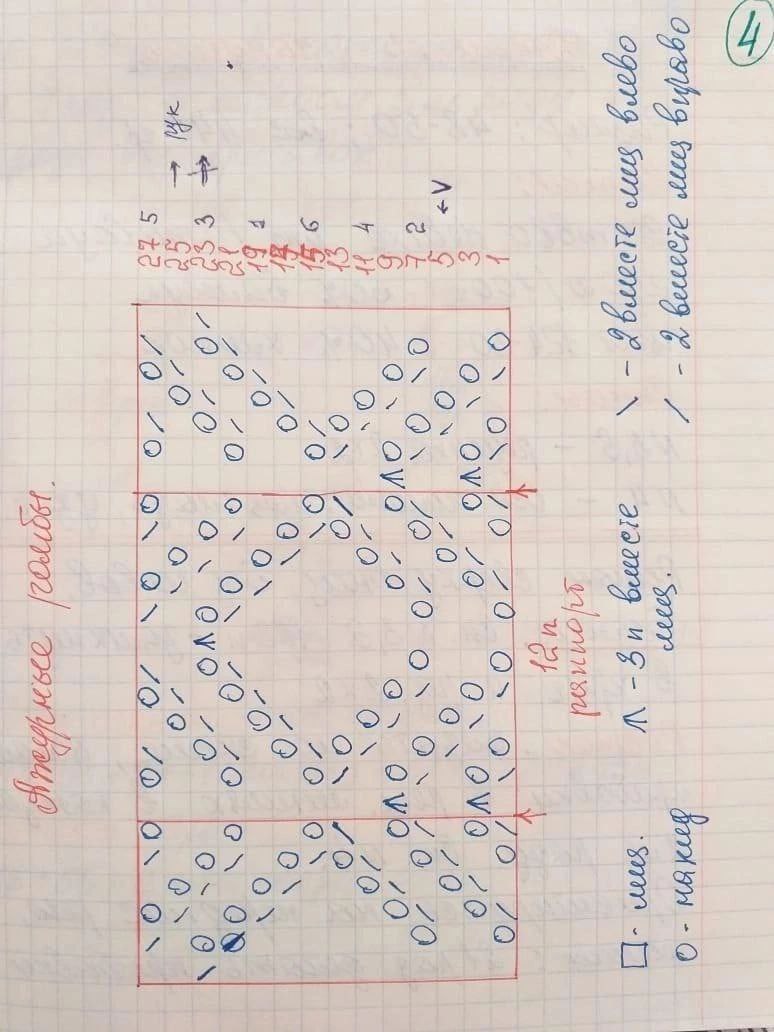 Ажурные ромбы.
27 5
25 → рук
23 3
21
19 1
17
15 6
13
11 4
9
7 2
5 ← V
3
1
12п
раппорт
□ - лиц. Λ - 3п вместе \ - 2 вместе лиц влево
лиц.
О - накид / - 2 вместе лиц вправо
4